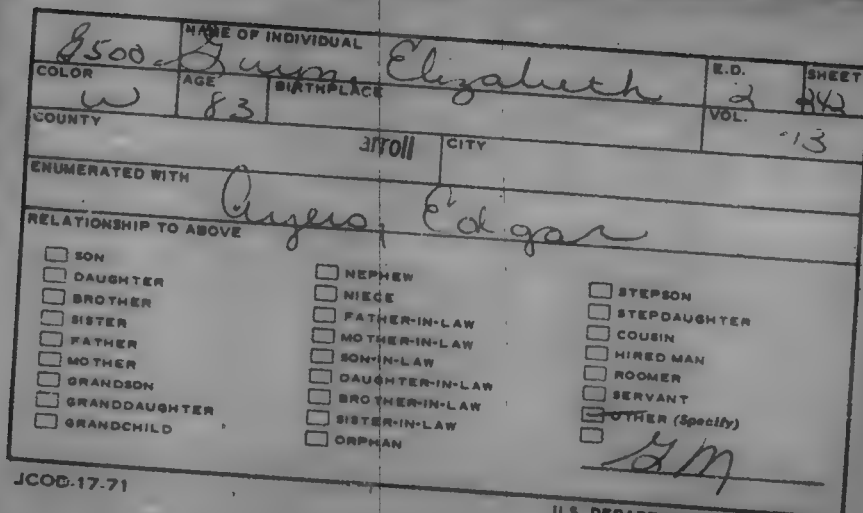 NAME OF INDIVIDUAL
Elizabeth
E.D. 2
SHEET 242
COLOR W
AGE 83
BIRTHPLACE
VOL. 13
COUNTY arroll
CITY
ENUMERATED WITH
Ayers, Edgar
RELATIONSHIP TO ABOVE
SON
DAUGHTER
BROTHER
SISTER
FATHER
MOTHER
GRANDSON
GRANDDAUGHTER
GRANDCHILD
NEPHEW
NIECE
FATHER-IN-LAW
MOTHER-IN-LAW
SON-IN-LAW
DAUGHTER-IN-LAW
BROTHER-IN-LAW
SISTER-IN-LAW
ORPHAN
STEPSON
STEPDAUGHTER
COUSIN
HIRED MAN
ROOMER
SERVANT
OTHER (Specify)
GM
JCOD-17-71